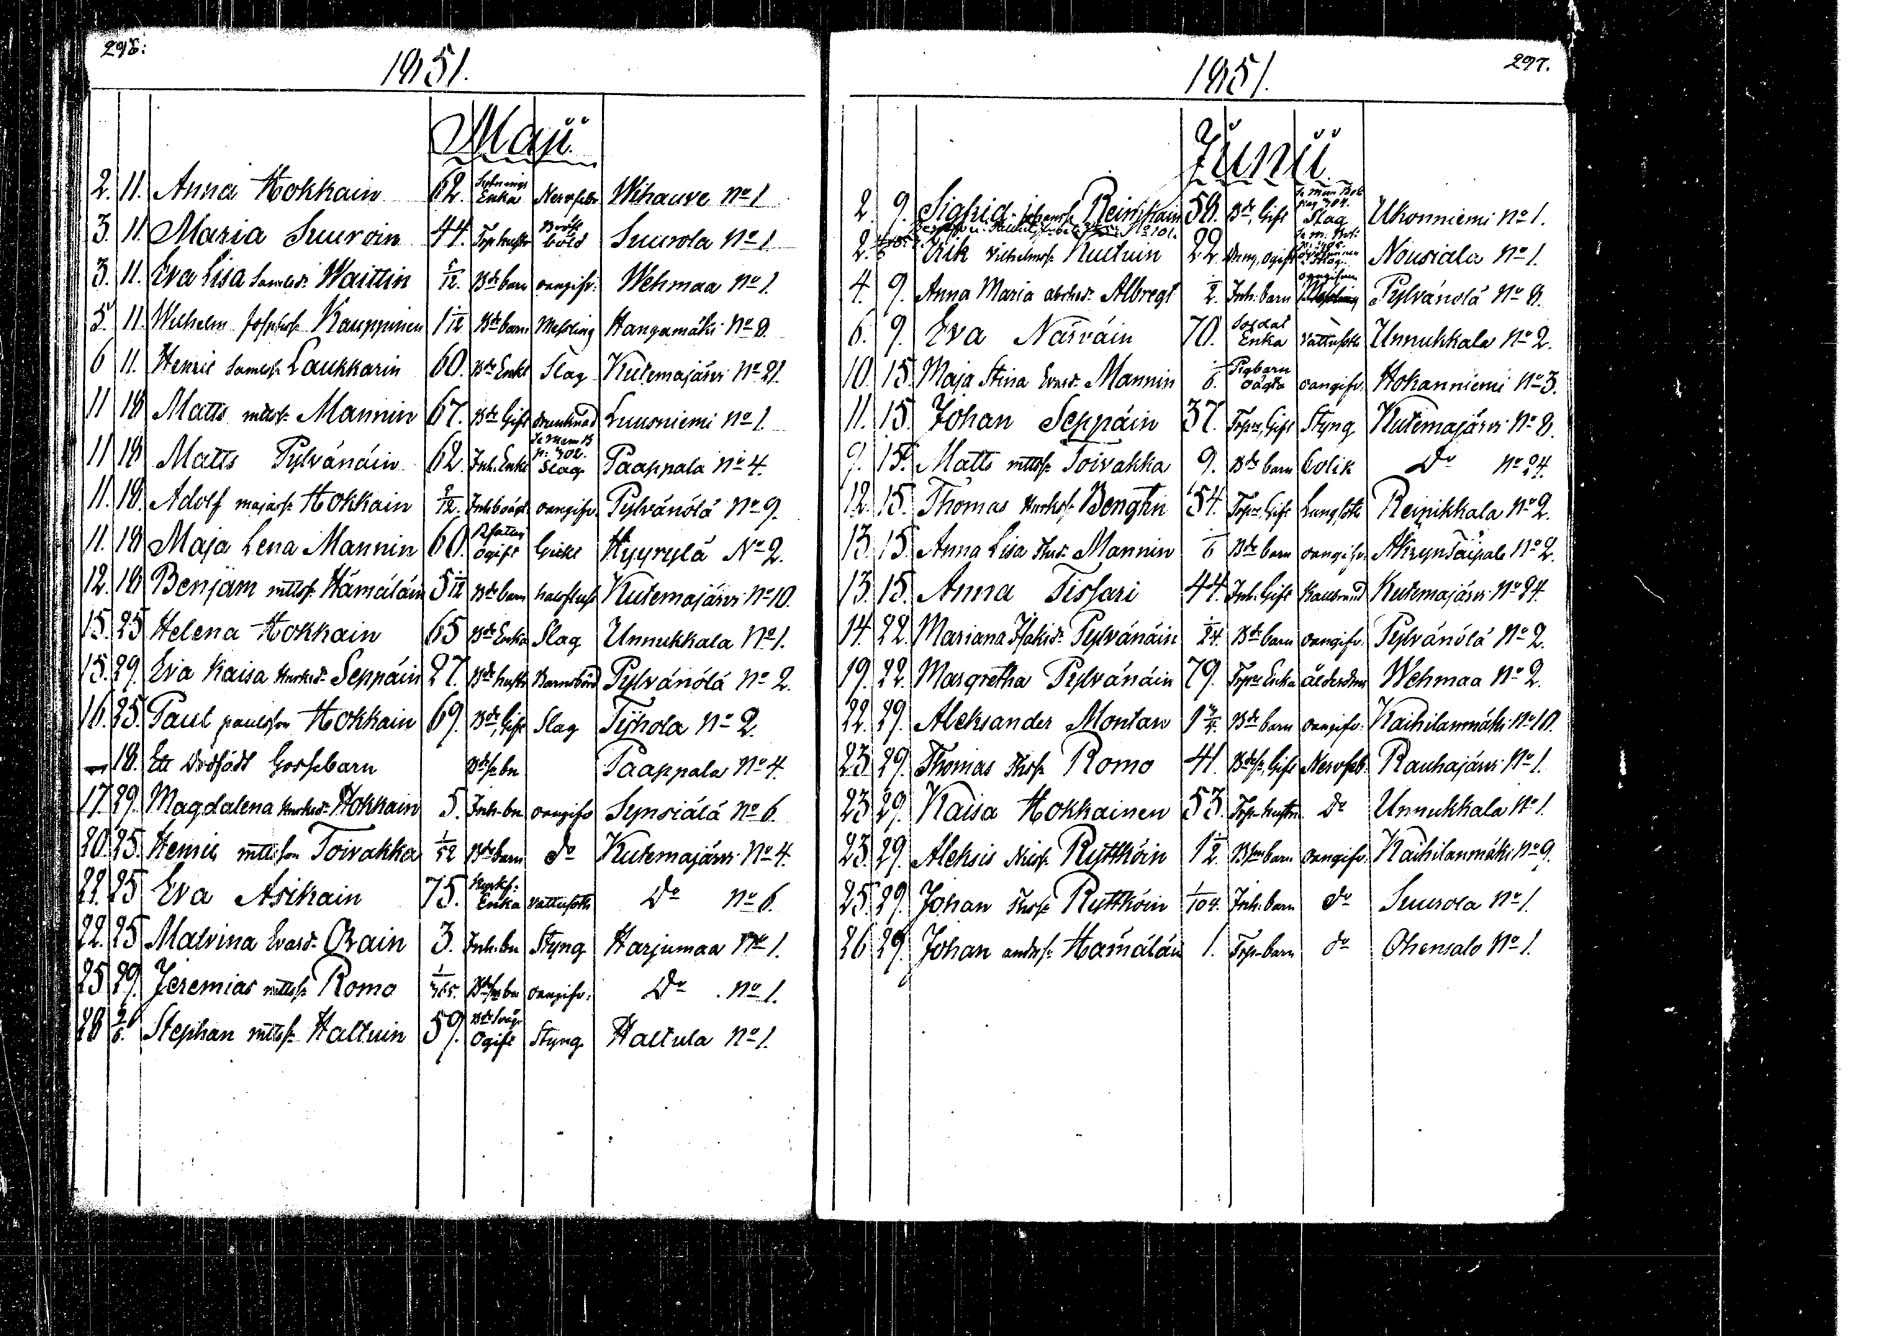 296:
1851.
Maji
2. 11. Anna Hokkain 62. Enka Nervfeb Wihauve No 1
3. 11. Maria Suuroin 44. Torp hustr Bröst böld Suurola No 1
3. 11. Eva Lisa Samlsdr Waittin 5/12 Bde barn oangifv: Wehmaa No 1.
5. 11. Wilhelm Josephss Kauppinen 1 1/12 Bde barn Messling Hangamäki No 8
6 11. Henric Samlss Laukkarin 60. Bde Enkl Slag Kutemajärvi No 21.
11 18 Matts mttss Mannin 67. Bde Gift drunknad Luusniemi No 1.
11 18 Matts Pylvänäin 62. Inh. Enkl Se Mem B p: 302. Slag Paappala No 4.
11. 18. Adolf majass Hokkain 2/12. Inh boägt oangifv. Pylvänölä No 9.
11. 18 Maja Lena Mannin 60. Rfattig Ogift Gickt Hyyrylä No 2.
12. 18 Benjam mttss Hämäläin 5 1/12 Bde barn halsfluss Kutemajärvi No 10.
15. 25 Helena Hokkain 65 Bde Enka Slag Unnukkala No 1.
15. 29. Eva Kaisa Henrksdr Seppäin 27. Bde hustr Barnsbörd Pylvänölä No 2.
16. 25. Paul paulsson Hokkain 69. Bde, Gift Slag Tyhola No 2.
— 18. Ett Dödfödt Gossebarn Bdess bn Paappala No 4.
17. 29. Magdalena Henrksdr Hokkain 5. Inh. bn oangifv Synsiälä No 6.
20. 25. Henric mattsson Toivakka 1/52 Bde barn do Kutemajärvi No 4.
22. 25 Eva Asikain 75. Enka vattusots Do No 6.
22. 25 Malvina Evasdr Orain 3. Inh. bn Styng Harjumaa No 1.
25 29. Jeremias mattss Romo 1/365. Bdess bn oangifv: Do No 1.
28 2/6. Stephan mttss Haltuin 59. Ogift Styng Haltula No 1.
297.
1851.
Junii
2. 9. Sigfrid johanss Reinikain 58. Bde, Gift Se Mem Bok pag 304. Slag Ukonniemi No 1.
2. Erik Vilhelmss Kuituin 22 Dräng, ogift Nousiala No 1.
4. 9. Anna Maria abrhsdr Albregt 1/2. Inh. barn oangifven Pylvänölä No 8.
6. 9. Eva Nasväin 70. Soldat Enka vattusots Unnukkala No 2.
10. 15. Maja Stina Evasdr Mannin 1/6. Pigbarn oägta oangifv. Hokanniemi No 3.
11. 15. Johan Seppäin 37. Torpr, Gift Styng Kutemajärvi No 8.
9. 15. Matts mttss Toivakka 9. Bde barn Colik Do No 24.
12. 15. Thomas Henrkss Bengtin 54. Torpr, Gift Lungsots Reinikkala No 2.
13. 15. Anna Lisa Thsdr Mannin 1/6 Bde barn oangifv. Akryn Taipale No 2.
13. 15. Anna Tissari 44. Inh. Gift Kallbrand Kutemajärvi No 24.
14. 22. Mariana Isaksdr Pylvänäin 1/24. Bde barn oangifv. Pylvänölä No 2.
19. 22. Margretha Pylvänäin 79. Torpr Enka ålderdom Wehmaa No 2.
22. 29. Aleksander Montan 1 3/4. Bde barn oangifv. Kaihilanmäki No 10.
23. 29. Thomas Thoss Romo 41. Bdess, Gift Nervfeb. Rauhajärvi No 1.
23 29. Kaisa Hokkainen 53. Torp hustr Do Unnukkala No 1.
23. 29. Aleksis Nilss Ruttköin 1 1/2. Bdess barn oangifv. Kaihilanmäki No 9.
25. 29. Johan Thoss Ruttköin 1/104. Inh. barn do Suurola No 1.
26 29. Johan andrss Hämäläin 1. Torp barn do Ohensalo No 1.